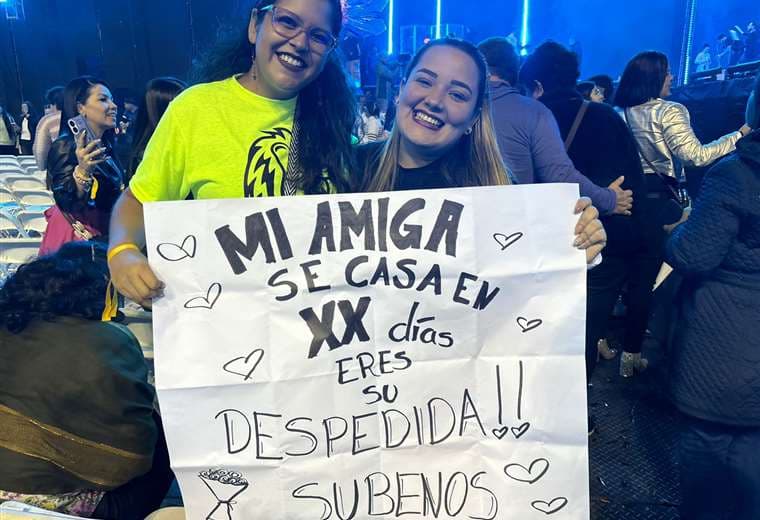 MI AMIGA
SE CASA EN
XX días
ERES
SU
DESPEDIDA!!
SUBENOS